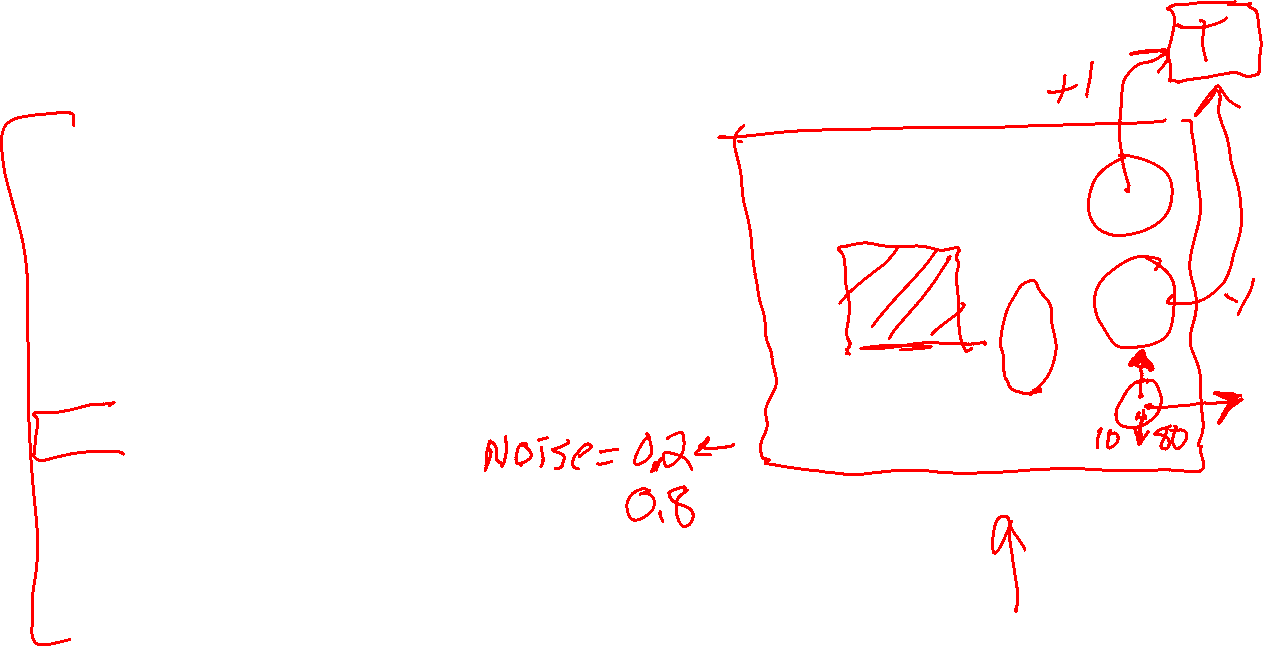 T
+1
-1
10 80
Noise = 0.2 ←
0.8